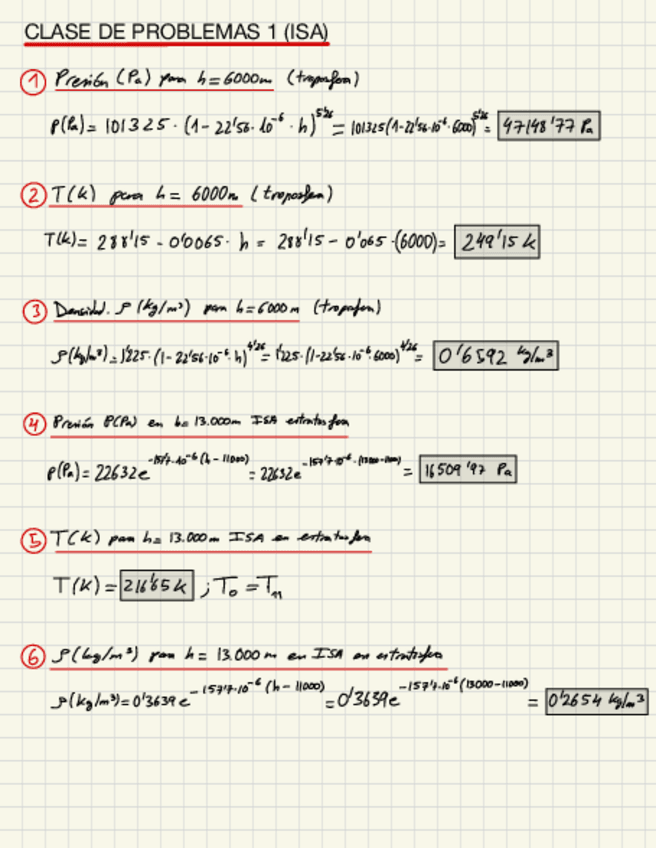 CLASE DE PROBLEMAS 1 (ISA)
① Presión (Pa) para h=6000m (troposfera)
P(Pa)= 101325·(1-22'56·10^-6·h)^5'26 = 101325(1-22'56·10^-6·6000)^5'26 = 47148'77 Pa
② T(k) para h= 6000m (troposfera)
T(k)= 288'15 - 0'0065· h = 288'15 - 0'065·(6000)= 249'15 k
③ Densidad. ρ (kg/m³) para h=6000m (troposfera)
ρ(kg/m³)=1'225·(1-22'56·10^-6·h)^4'26 = 1'225·(1-22'56·10^-6·6000)^4'26 = 0'6592 kg/m³
④ Presión P(Pa) en h= 13.000m ISA estratosfera
P(Pa)= 22632e^-157'7·10^-6(h-11000) = 22632e^-157'7·10^-6·(13000-11000) = 16509'97 Pa
⑤ T(k) para h= 13.000m ISA en estratosfera
T(k)= 216'65 k ; T₀ = T₁₁
⑥ ρ(kg/m³) para h= 13.000 m en ISA en estratosfera
ρ(kg/m³)=0'3639e^-157'7·10^-6(h-11000) = 0'3639e^-157'7·10^-6(13000-11000) = 0'2654 kg/m³